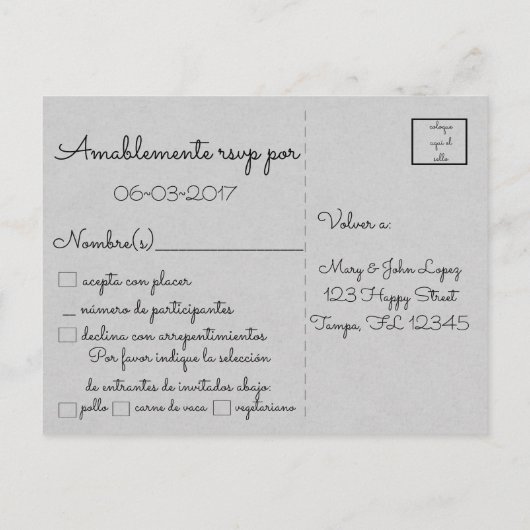 Amablemente rsvp por
06-03-2017
Nombre(s)_______________
acepta con placer
_ número de participantes
declina con arrepentimientos
Por favor indique la selección
de entrantes de invitados abajo:
pollo carne de vaca vegetariano
coloque
aquí el
sello
Volver a:
Mary & John Lopez
123 Happy Street
Tampa, FL 12345